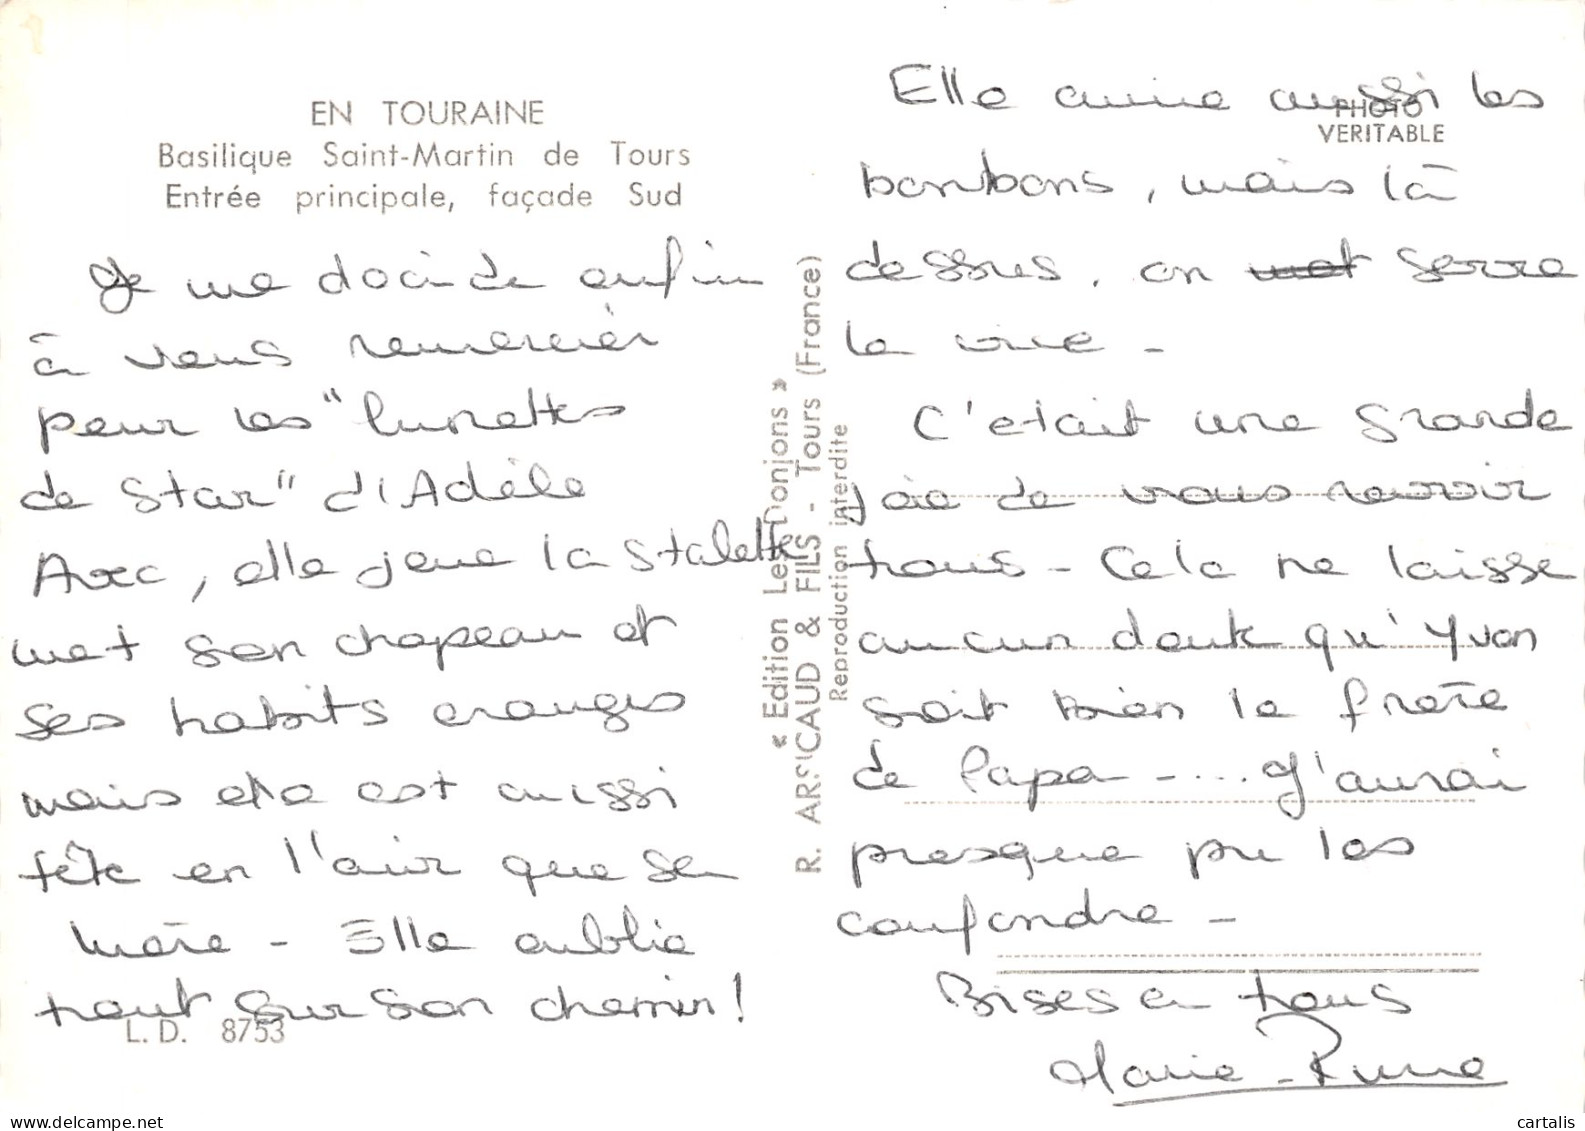 EN TOURAINE
Basilique Saint-Martin de Tours
Entrée principale, façade Sud
Je me décide enfin
à vous remercier
pour les "lunettes
de Star" d'Adèle
Avec, elle joue la starlette
met son chapeau et
ses habits oranges
mais elle est aussi
tête en l'air que sa
mère - Elle oublie
tout sur son chemin !
L. D. 8753
« Edition Les Donjons »
R. ARSICAUD & FILS - Tours (France)
Reproduction interdite
PHOTO
VERITABLE
Elle aime aussi les
bonbons, mais là
dessus, on met serre
la vice -
C'était une grande
joie de vous revoir
tous - Cela ne laisse
aucun doute qu'Yvon
soit bien le frère
de Papa - .... J'aurai
presque pu les
confondre -
Bises à tous
Marie-Pierre
cartalis